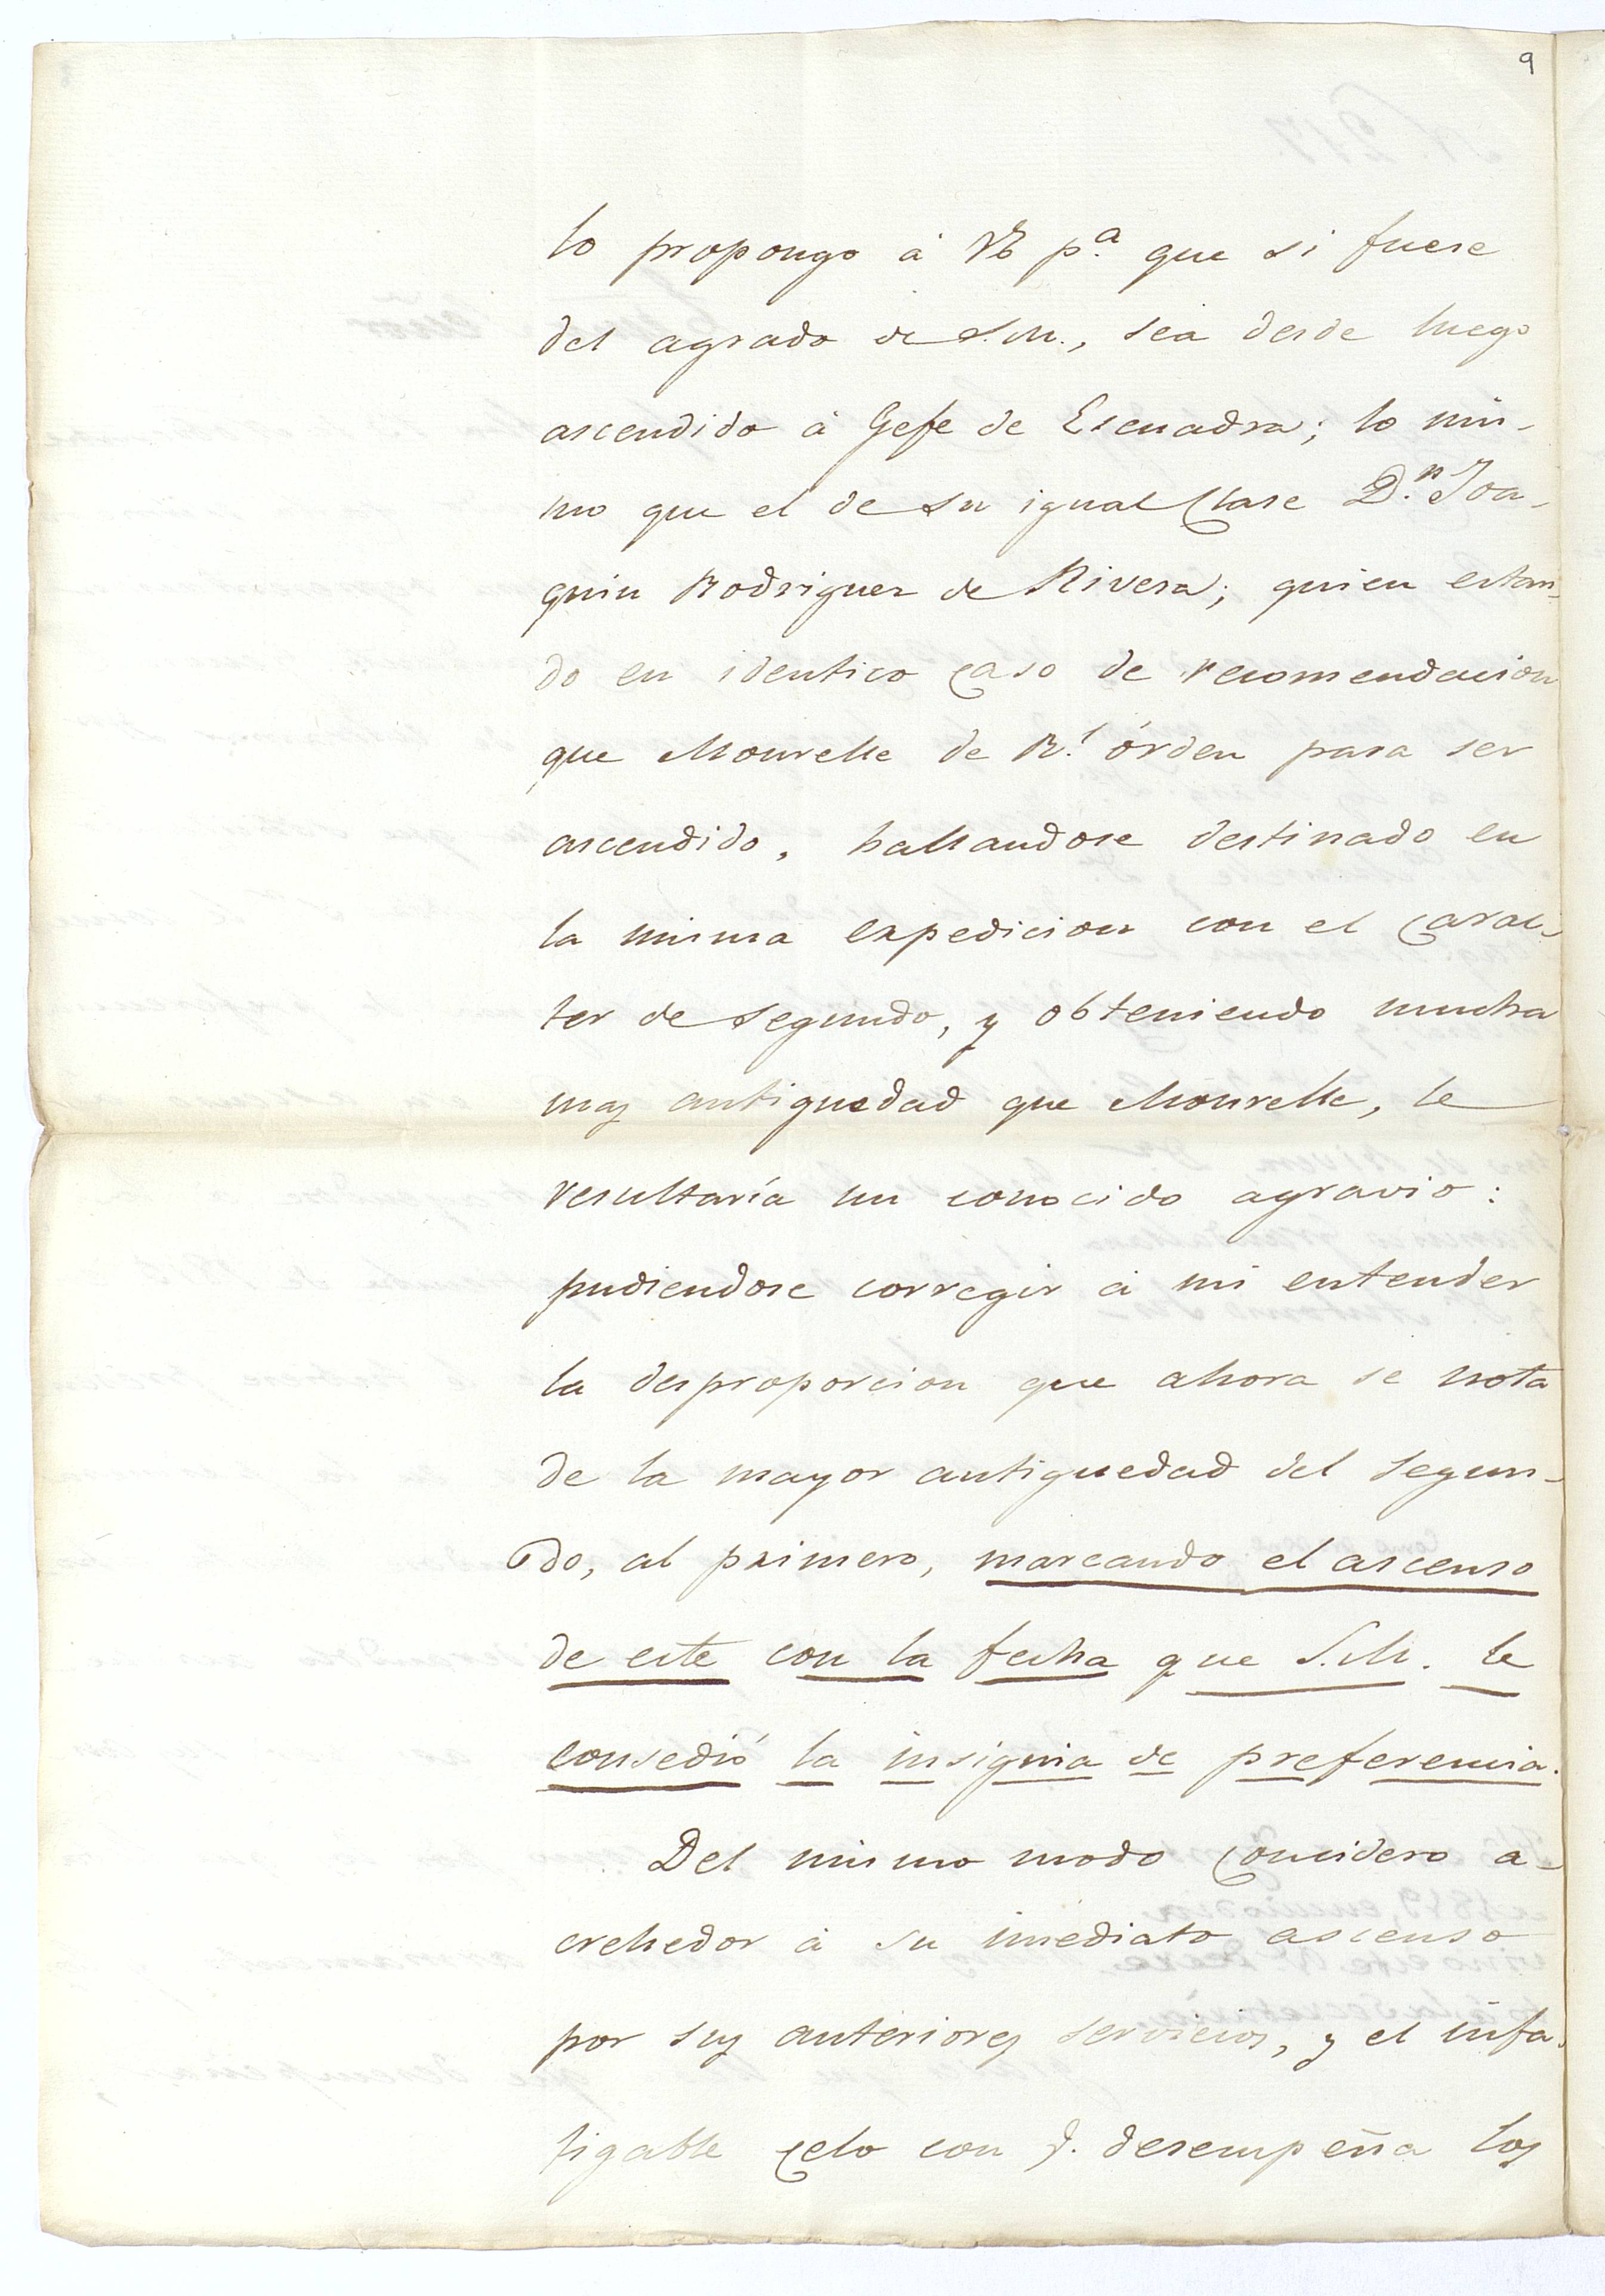 9
lo propongo à VE p.ª que si fuese
del agrado de S.M., sea desde luego
ascendido à Gefe de Escuadra; lo mis-
mo que el de su igual Clase D.n Joa-
quin Rodriguez de Rivera; quien estan-
do en identico caso de recomendacion
que Mourelle de R.l órden para ser
ascendido, hallandose destinado en
la misma expedicion con el carac-
ter de segundo, y obteniendo mucha
mas antiguedad que Mourelle, le
resultaría un conocido agravio:
pudiendose corregir à mi entender
la desproporcion que ahora se nota
de la mayor antiguedad del segun-
do, al primero, marcando el ascenso
de este con la fecha que S.M. le
consedió la insignia de preferencia.
Del mismo modo concidero a-
crehedor à su imediato ascenso
por sus anteriores servicios, y el infa-
tigable celo con q. desempeña los